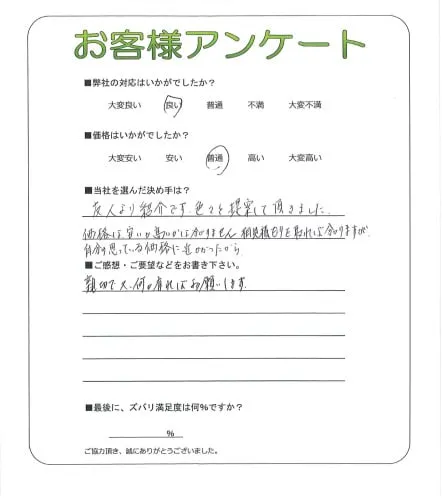 お客様アンケート
■弊社の対応はいかがでしたか？
大変良い 良い 普通 不満 大変不満
■価格はいかがでしたか？
大変安い 安い 普通 高い 大変高い
■当社を選んだ決め手は？
友人より紹介です。色々と提案して頂きました。
価格は安いか高いかは分りません 相見積もりを取れば分りますが、
自分の思っている価格に近かったから
■ご感想・ご要望などをお書き下さい。
親切で又、何か有ればお願いします。
■最後に、ズバリ満足度は何%ですか？
%
ご協力頂き、誠にありがとうございました。